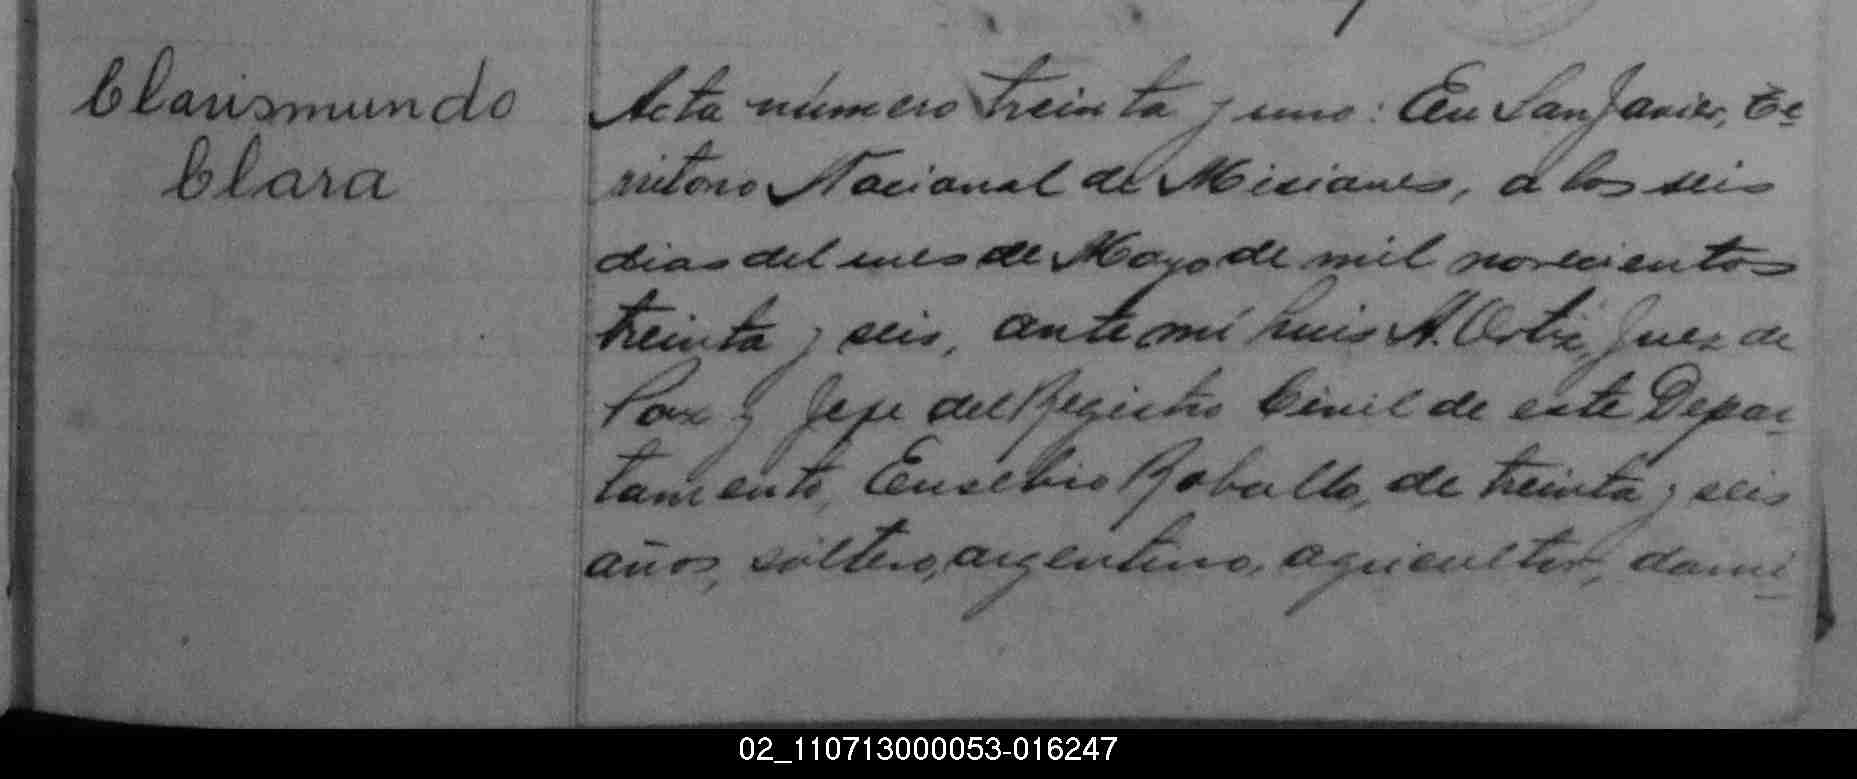 Clarismundo
Clara
Acta número treinta y uno: En San Javier, Te-
rritorio Nacional de Misiones, a los seis
dias del mes de Mayo de mil novecientos
treinta y seis, ante mí Luis A. Ortiz, Juez de
Paz y Jefe del Registro Civil de este Depar-
tamento, Eusebio Roballo, de treinta y seis
años, soltero, argentino, agricultor, domi-
02_110713000053-016247